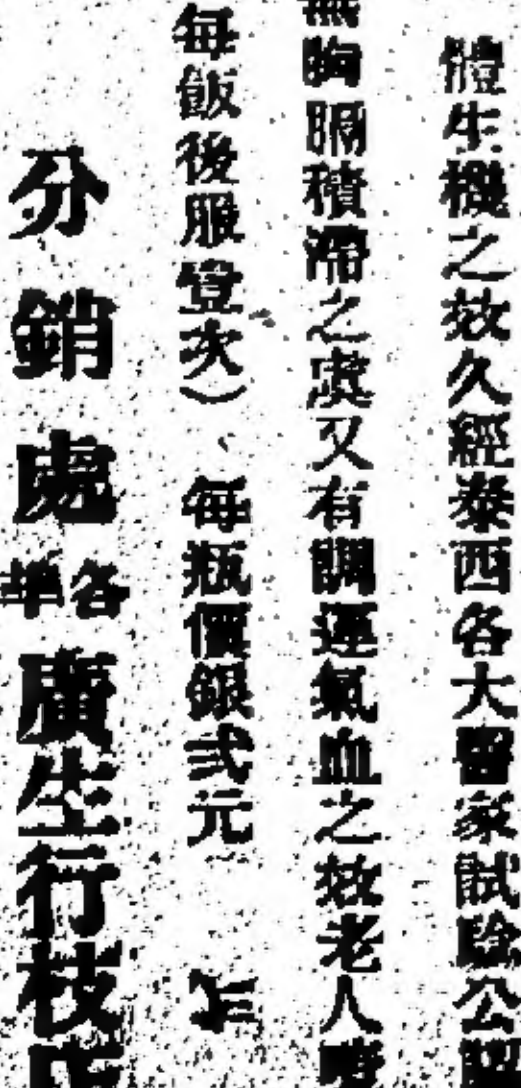 體生機之效久經泰西各大醫家試驗公認
無胸膈積滯之虞又有調運氣血之效老人
每飯後服壹次）、每瓶價銀弍元
分銷處各埠廣生行枝店